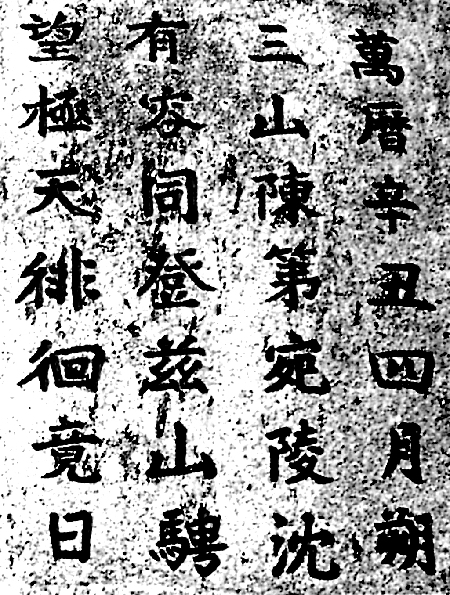 萬曆辛丑四月朔
三山陳第宛陵沈
有容同登兹山騁
望極天徘徊竟日